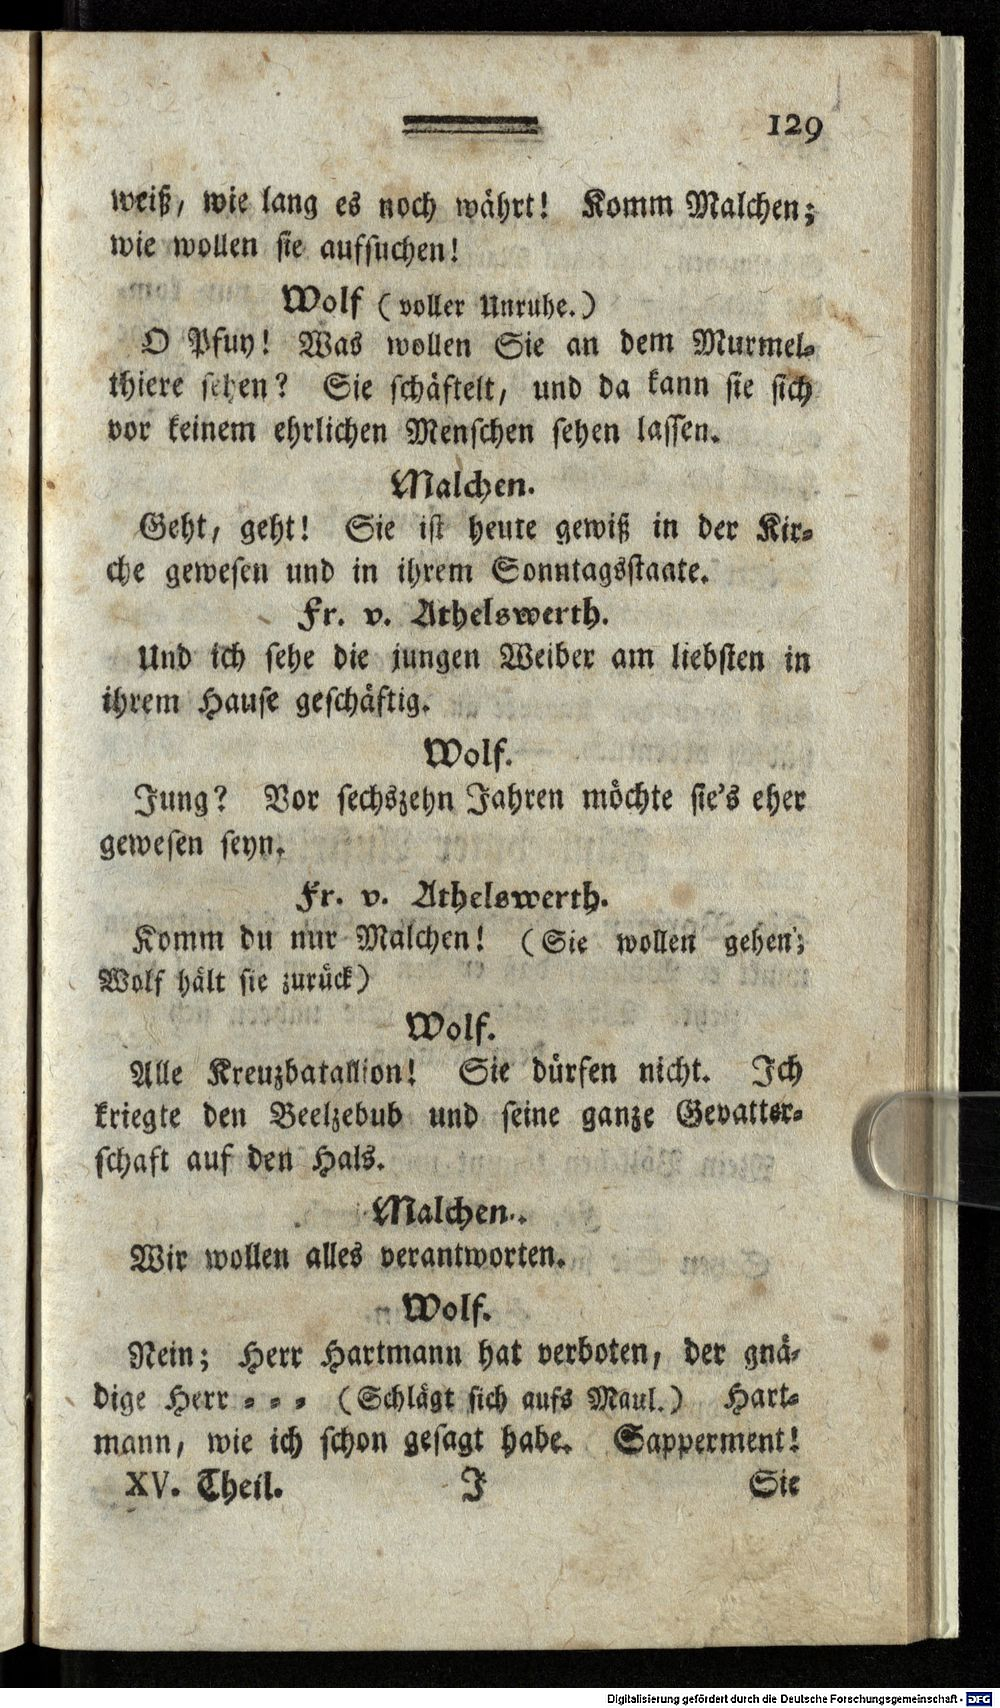 129
weiß, wie lang es noch währt! Komm Malchen;
wie wollen sie aufsuchen!
Wolf (voller Unruhe.)
O Pfuy! Was wollen Sie an dem Murmel-
thiere sehen? Sie schäftelt, und da kann sie sich
vor keinem ehrlichen Menschen sehen lassen.
Malchen.
Geht, geht! Sie ist heute gewiß in der Kir-
che gewesen und in ihrem Sonntagsstaate.
Fr. v. Athelswerth.
Und ich sehe die jungen Weiber am liebsten in
ihrem Hause geschäftig.
Wolf.
Jung? Vor sechszehn Jahren möchte sie's eher
gewesen seyn.
Fr. v. Athelswerth.
Komm du nur Malchen! (Sie wollen gehen;
Wolf hält sie zurück)
Wolf.
Alle Kreuzbatallion! Sie dürfen nicht. Ich
kriegte den Beelzebub und seine ganze Gevatter-
schaft auf den Hals.
Malchen.
Wir wollen alles verantworten.
Wolf.
Nein; Herr Hartmann hat verboten, der gnä-
dige Herr - - - (Schlägt sich aufs Maul.) Hart-
mann, wie ich schon gesagt habe. Sapperment!
XV. Theil. J Sie
Digitalisierung gefördert durch die Deutsche Forschungsgemeinschaft - DFG